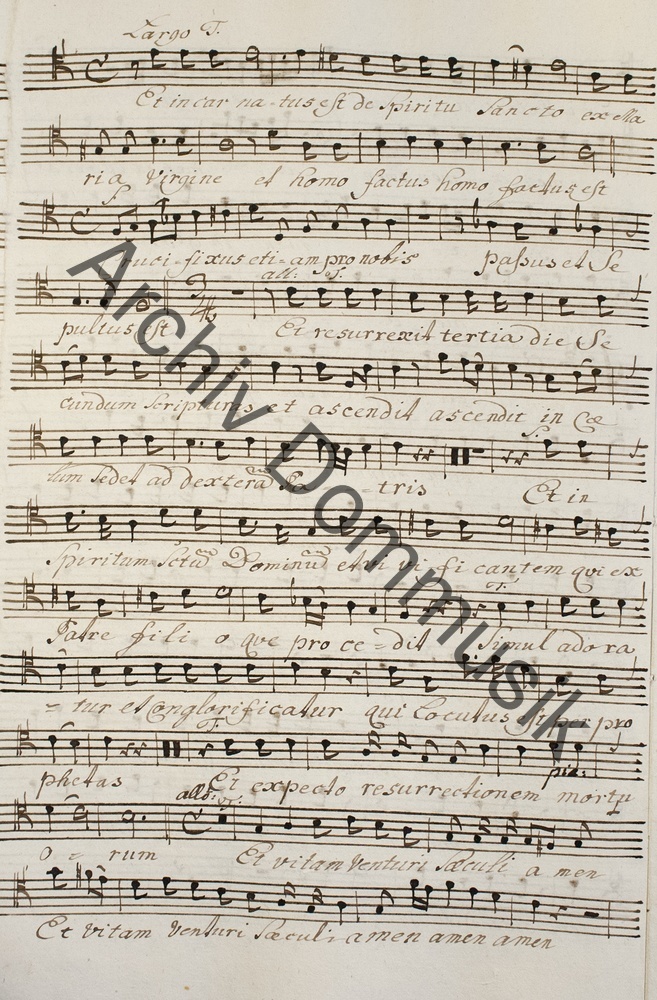 Largo T.
Et in car na - tus est de Spiritu Sancto ex Ma
ria Virgine et homo factus homo factus est
S.
cruci - fixus eti - am pro nobis Passus et Se
all: T.
pultus est Et resurrexit tertia die Se
cundum Scripturas et ascendit ascendit in Cœ
S.
lum sedet ad dexterã Pa - tris Et in
Spiritum Sctũ Dominũ et vi vi fi cantem qui ex
T.
Patre fili o que pro ce - dit Simul adora
- tur et Conglorificatur qui Locutus est per pro
T.
phetas Et expecto resurrectionem mortu
pia:
allo: T.
o - rum Et vitam Venturi Sæculi a men
Et vitam Venturi Sæculi amen amen amen
Archiv Dommusik